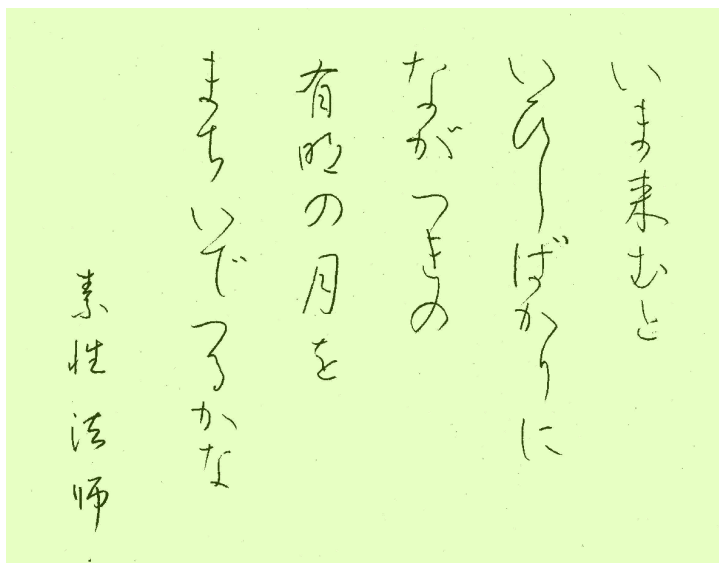 いま来むと
いひしばかりに
ながつきの
有明の月を
まちいでつるかな
素性法師